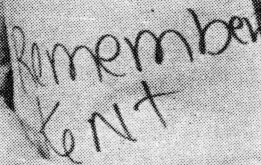 Remember
KENT